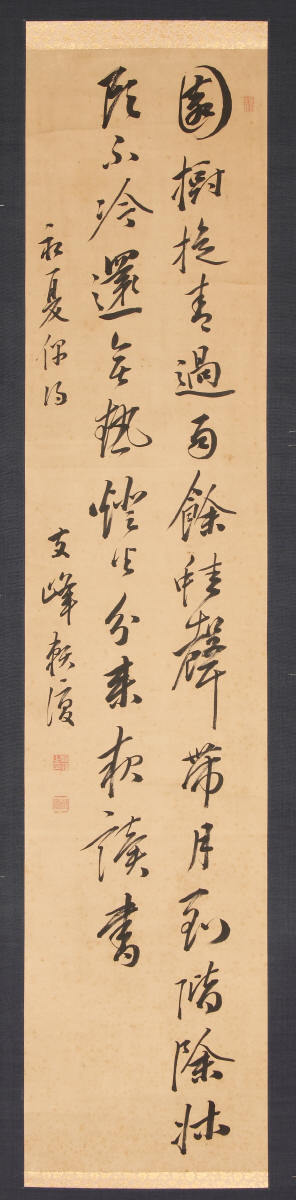 園樹拖青過雨餘蛙聲帶月到階除牀
頭不冷還無熱燈火分来夜讀書
初夏偶得 支峰頼復